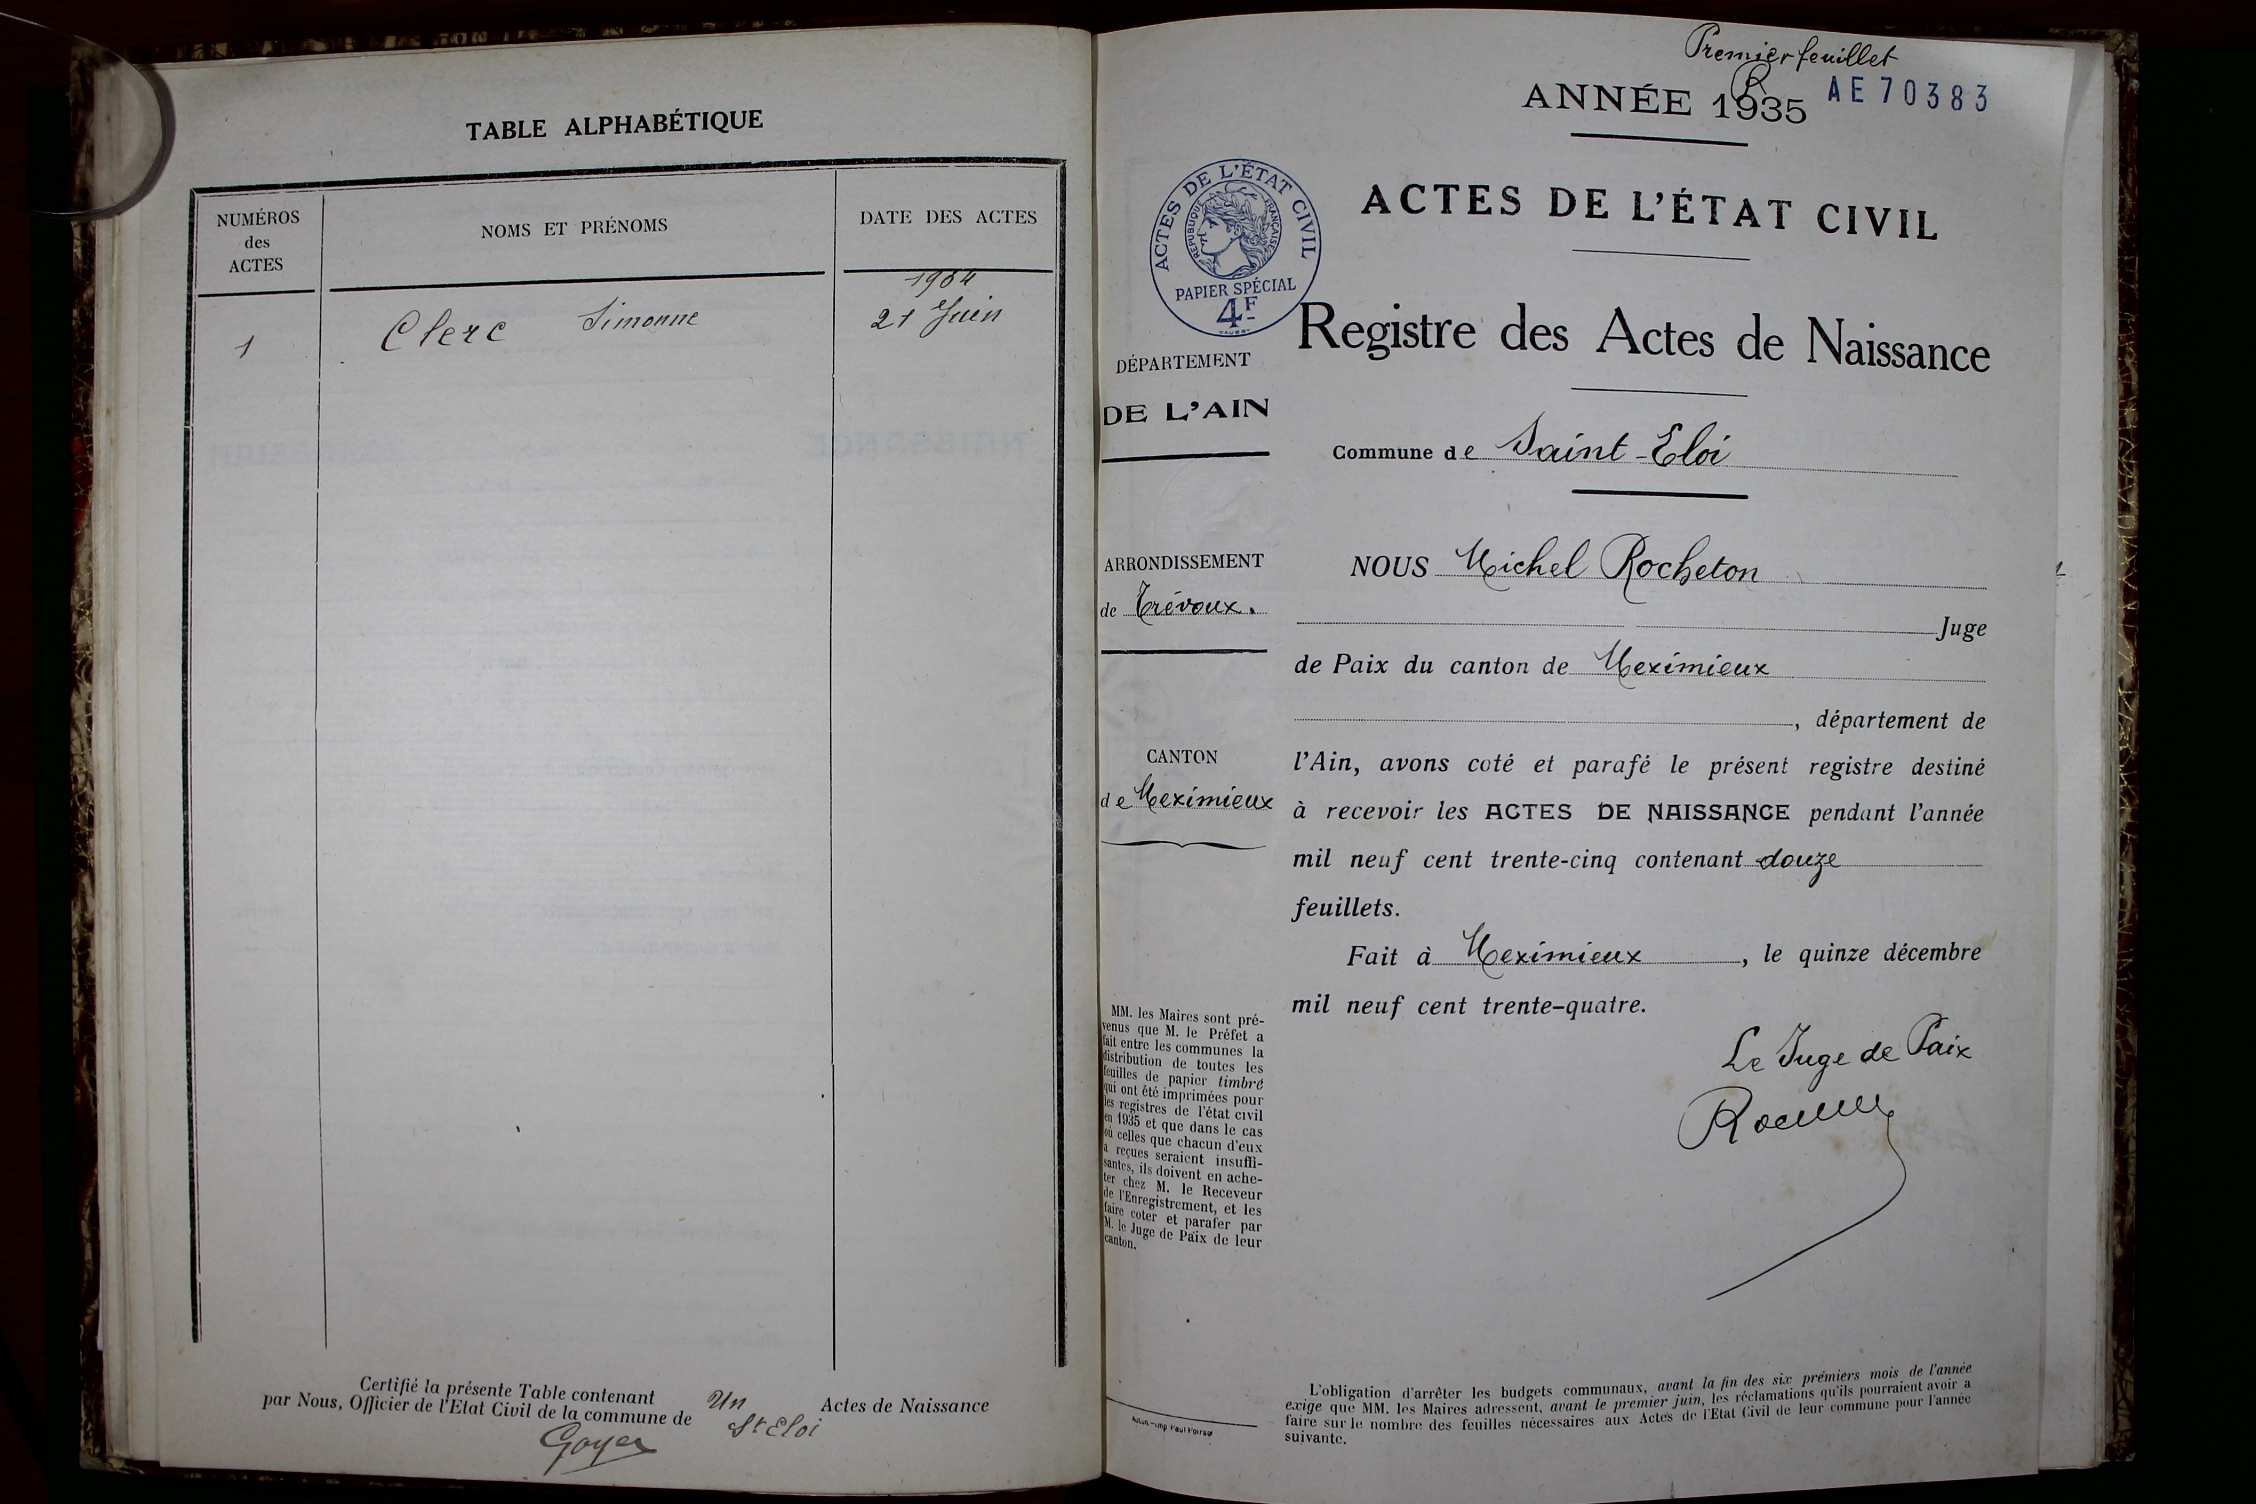 TABLE ALPHABÉTIQUE
NUMÉROS
des
ACTES
NOMS ET PRÉNOMS
DATE DES ACTES
1934
1 Clerc Simonne 21 Juin
Certifié la présente Table contenant Un Actes de Naissance
par Nous, Officier de l'Etat Civil de la commune de St Eloi
Goyer
Premier feuillet
R
ANNÉE 1935 AE 70383
ACTES DE L'ÉTAT CIVIL
ACTES DE L'ÉTAT CIVIL
RÉPUBLIQUE FRANÇAISE
PAPIER SPÉCIAL
4F
Registre des Actes de Naissance
DÉPARTEMENT
DE L'AIN
Commune de Saint-Eloi
ARRONDISSEMENT
de Trévoux.
CANTON
de Meximieux
NOUS Michel Rocheton
Juge
de Paix du canton de Meximieux
, département de
l'Ain, avons coté et parafé le présent registre destiné
à recevoir les ACTES DE NAISSANCE pendant l'année
mil neuf cent trente-cinq contenant douze
feuillets.
Fait à Meximieux, le quinze décembre
mil neuf cent trente-quatre.
Le Juge de Paix
MM. les Maires sont pré-
venus que M. le Préfet a
fait entre les communes la
distribution de toutes les
feuilles de papier timbré
qui ont été imprimées pour
les registres de l'état civil
en 1935 et que dans le cas
où celles que chacun d'eux
a reçues seraient insuffi-
santes, ils doivent en ache-
ter chez M. le Receveur
de l'Enregistrement, et les
faire coter et parafer par
M. le Juge de Paix de leur
canton.
L'obligation d'arrêter les budgets communaux, avant la fin des six prémiers mois de l'année
exige que MM. les Maires adressent, avant le premier juin, les réclamations qu'ils pourraient avoir a
faire sur le nombre des feuilles nécessaires aux Actes de l'Etat Civil de leur commune pour l'année
suivante.